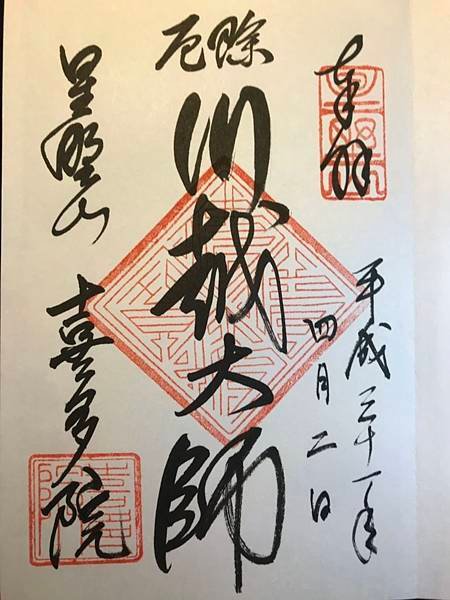 奉拝
平成三十一年
四月二日
厄除
川越大師
星野山
喜多院